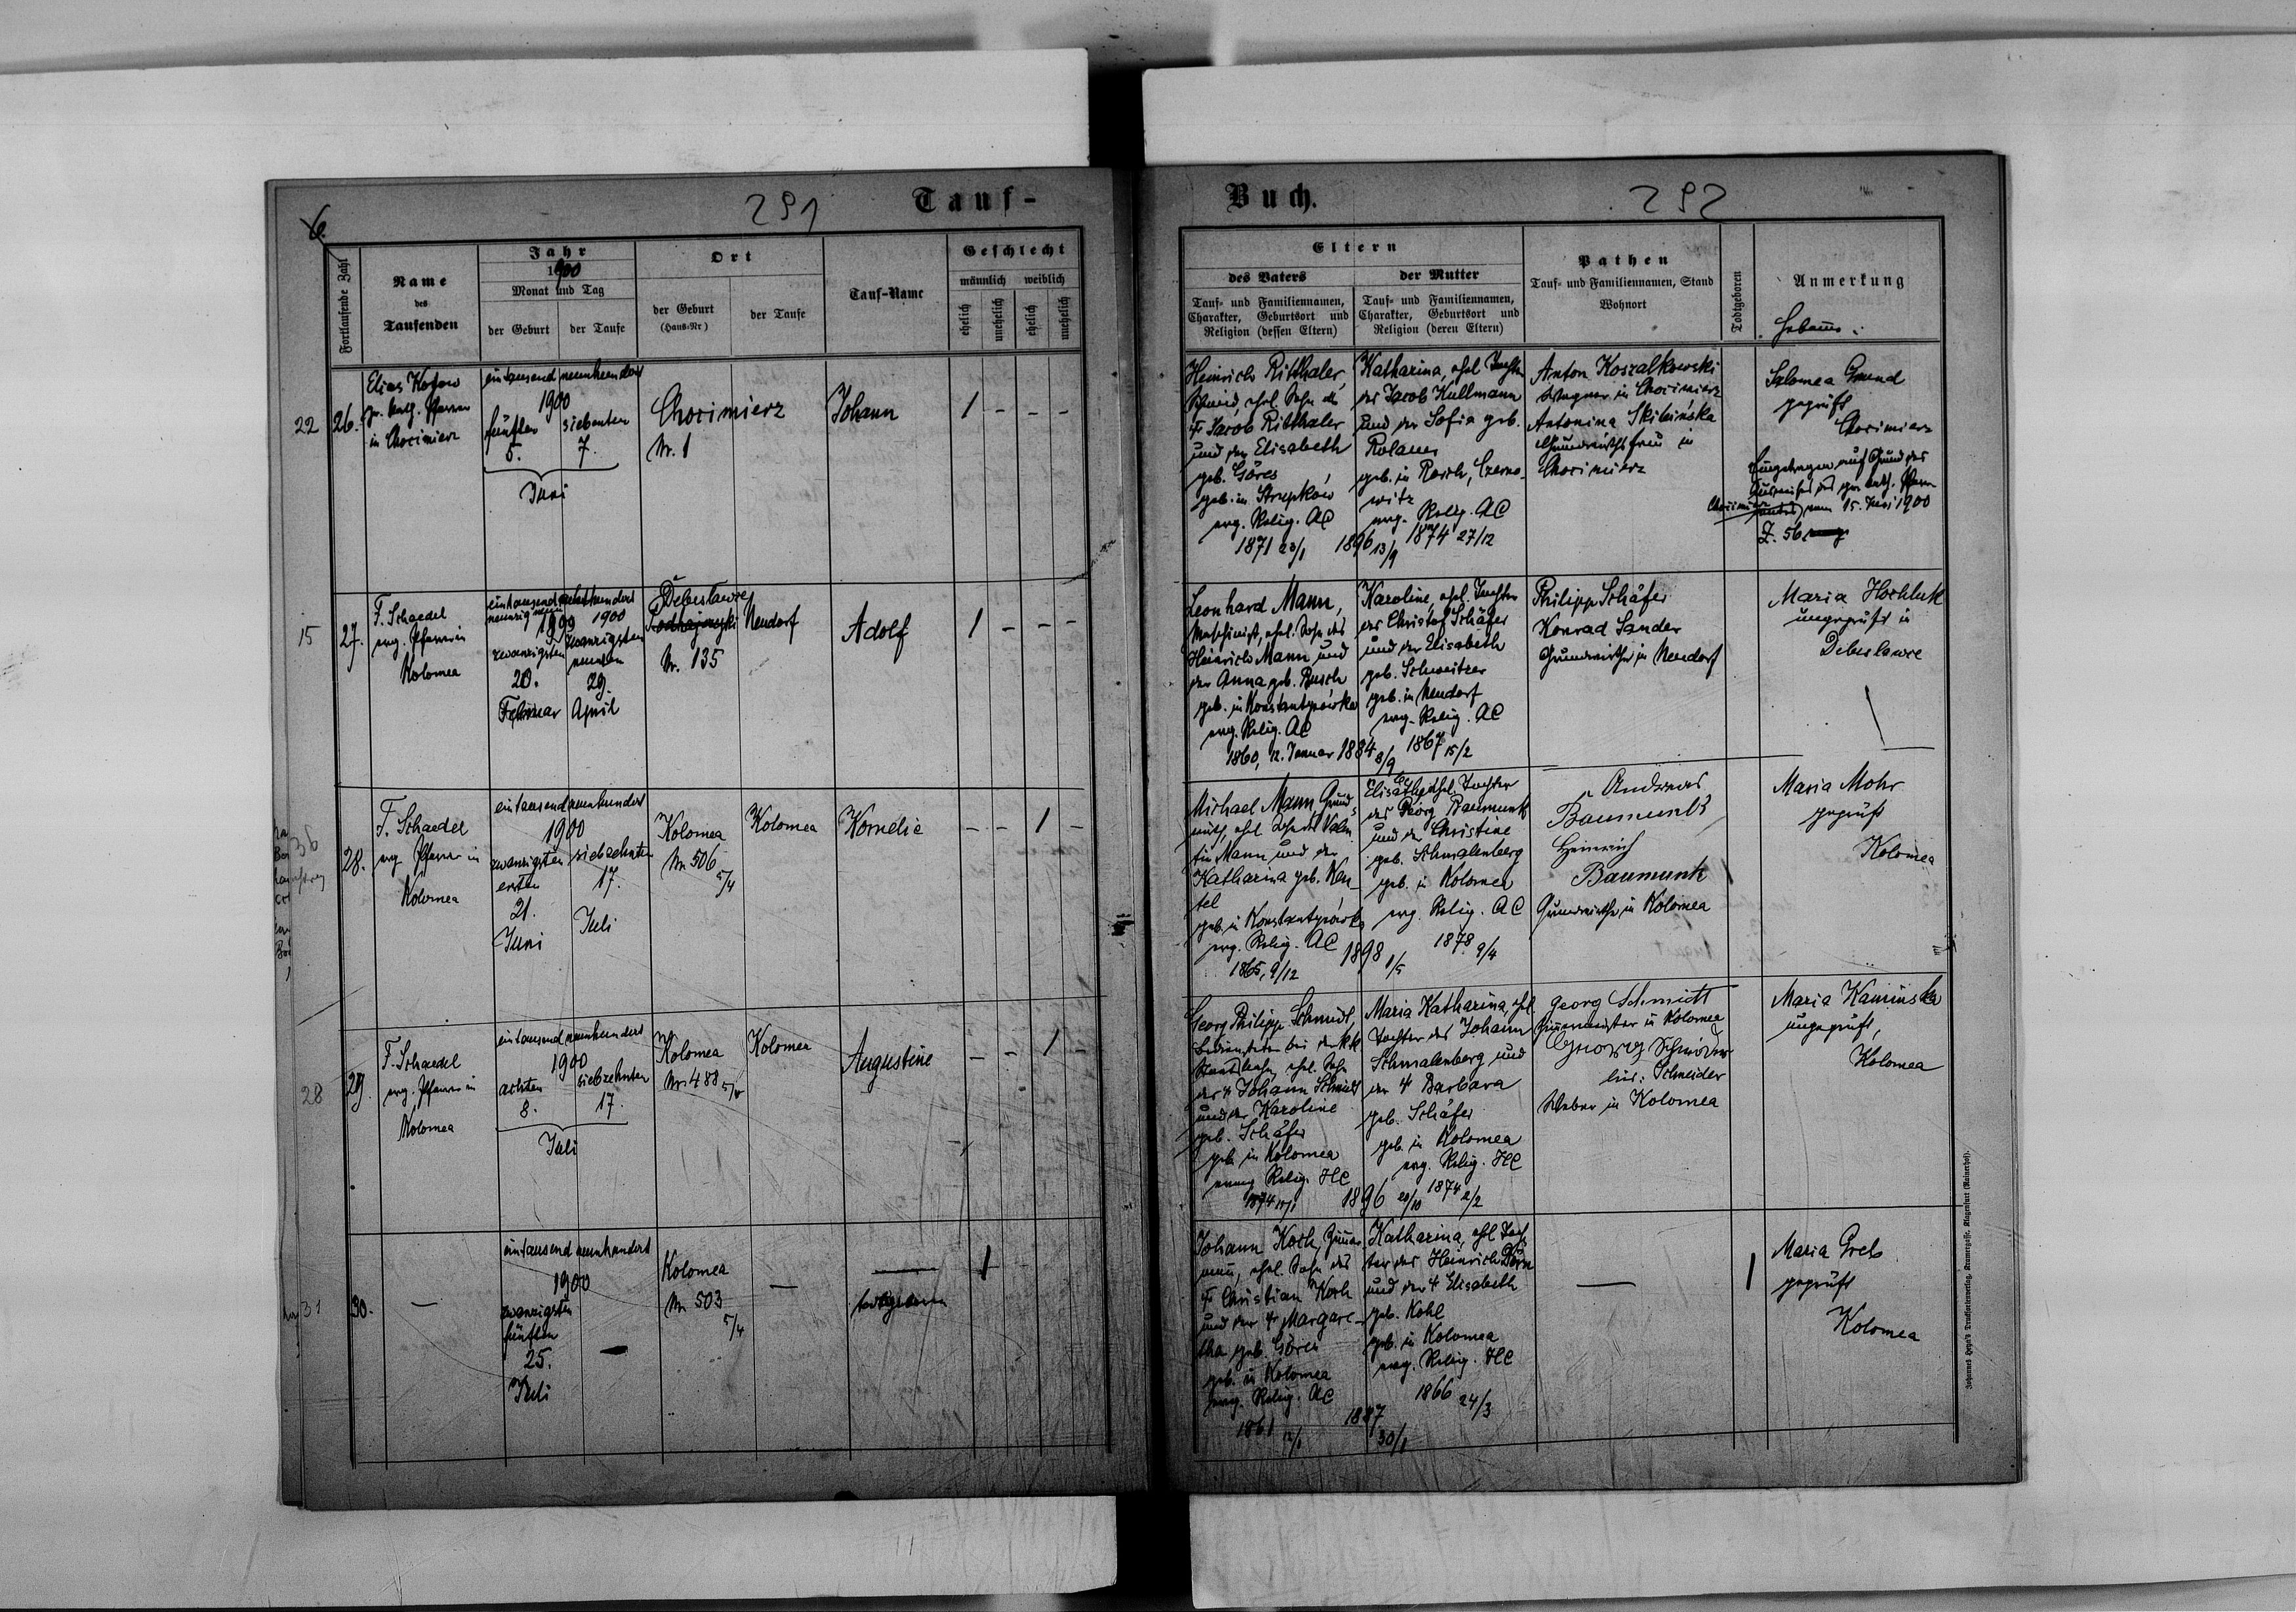 291
Tauf-
6.
Fortlaufende Zahl
Name
des
Taufenden
Jahr
1900
Monat und Tag
der Geburt
der Taufe
Ort
der Geburt
(Haus-Nr)
der Taufe
Tauf-Name
Geschlecht
männlich
weiblich
ehelich
unehelich
ehelich
unehelich
22
26.
Elias Kotow
gr. kath. Pfarrer
in Chocimierz
eintausend neunhundert
1900
fünften
5.
siebenten
7.
Juni
Chocimierz
Nr. 1
Johann
1 - - -
15
27.
F. Schaedel
evg. Pfarrer in
Kolomea
eintausend
neunzig neun
1899
1900
zwanzigsten
20.
Februar
zwanzigsten
neunten
29.
April
Debeslawce
Nr. 135
Neudorf
Adolf
1 - - -
36
28.
F. Schaedel
evg. Pfarrer in
Kolomea
eintausend neunhundert
1900
zwanzigsten
ersten
21.
Juni
siebzehnten
17.
Juli
Kolomea
Nr. 506
5/4
Kolomea
Kornelie
- - 1 -
28
29.
F. Schaedel
evg. Pfarrer in
Kolomea
eintausend neunhundert
1900
achten
8.
siebzehnten
17.
Juli
Kolomea
Nr. 488
Kolomea
Augustine
- - 1 -
31
30.
-
eintausend neunhundert
1900
zwanzigsten
fünften
25.
Juli
-
Kolomea
Nr. 503
5/4
-
totgeboren
1
Buch.
292
Eltern
des Vaters
Tauf- und Familiennamen,
Charakter, Geburtsort und
Religion (dessen Eltern)
der Mutter
Tauf- und Familiennamen,
Charakter, Geburtsort und
Religion (deren Eltern)
Pathen
Tauf- und Familiennamen, Stand
Wohnort
Todtgeboren
Anmerkung
Hebamme:
Heinrich Ritthaler,
Schmied, ehel. Sohn des
† Jacob Ritthaler
und der Elisabeth
geb. Göres
geb. in Strupków
evg. Relig. AC
1871 23/1
1896 13/9
Katharina, ehel. Tochter
des Jacob Kullmann
und der Sofia geb.
geb. in Rosch, Czerno-
witz
evg. Relig. AC
1874 27/12
Anton Koszalkowski
Wagner in Chocimierz
Antonina Skibińska
Grundwirthsfrau in
Chocimierz
Salomea Grund
geprüft
Chocimierz
Eingetragen auf Grund des
Ausweises des gr. kath. Pfarr-
amtes Chocimierz vom 15. Juni 1900
Z. 56
Leonhard Mann,
Maschinist, ehel. Sohn des
Heinrich Mann und
der Anna geb. Busch
geb. in Konstantynówka
evg. Relig. AC
1860, 12. Januar
1884 8/9
Karoline, ehel. Tochter
des Christof Schäfer
und der Elisabeth
geb. Schweitzer
geb. in Neudorf
evg. Relig. AC
1867 15/2
Philipp Schäfer
Konrad Sander
Grundwirthe in Neudorf
Maria Hochluk
ungeprüft in
Debeslawce
Michael Mann, Grund-
wirth, ehel. Sohn des Valen-
tin Mann und der
Katharina geb. Keu-
tel
geb. in Konstantynówka
evg. Relig. AC
1865, 9/12
1898 1/5
Elisabeth, ehel. Tochter
des Georg Baumunk
und der Christine
geb. Schmalenberg
geb. in Kolomea
evg. Relig. AC
1878 9/4
Andreas
Baumunk
Heinrich
Baumunk
Grundwirthe in Kolomea
Maria Mohr
geprüft
Kolomea
Georg Philipp Schmidt,
Bediensteter bei der kk
Staatsbahn, ehel. Sohn
des † Johann Schmidt
und der Karoline
geb. Schäfer
geb. in Kolomea
evang. Relig. HC
1874
1896 28/10
Maria Katharina, ehel.
Tochter des Johann
Schmalenberg und
der † Barbara
geb. Schäfer
geb. in Kolomea
evg. Relig. HC
1874 2/2
Georg Schmidt
in Kolomea
Georg Schneider
Schneider
Weber in Kolomea
Maria Kaminska
ungeprüft,
Kolomea
Johann Koch, Zimmer-
mann, ehel. Sohn des
† Christian Koch
und der † Margare-
tha geb. Göres
geb. in Kolomea
evg. Relig. AC
1861
1887 30/1
Katharina, ehel. Toch-
ter des Heinrich Dörn
und der † Elisabeth
geb. Kohl
geb. in Kolomea
evg. Relig. HC
1866 24/3
-
1
Maria Greb
geprüft
Kolomea